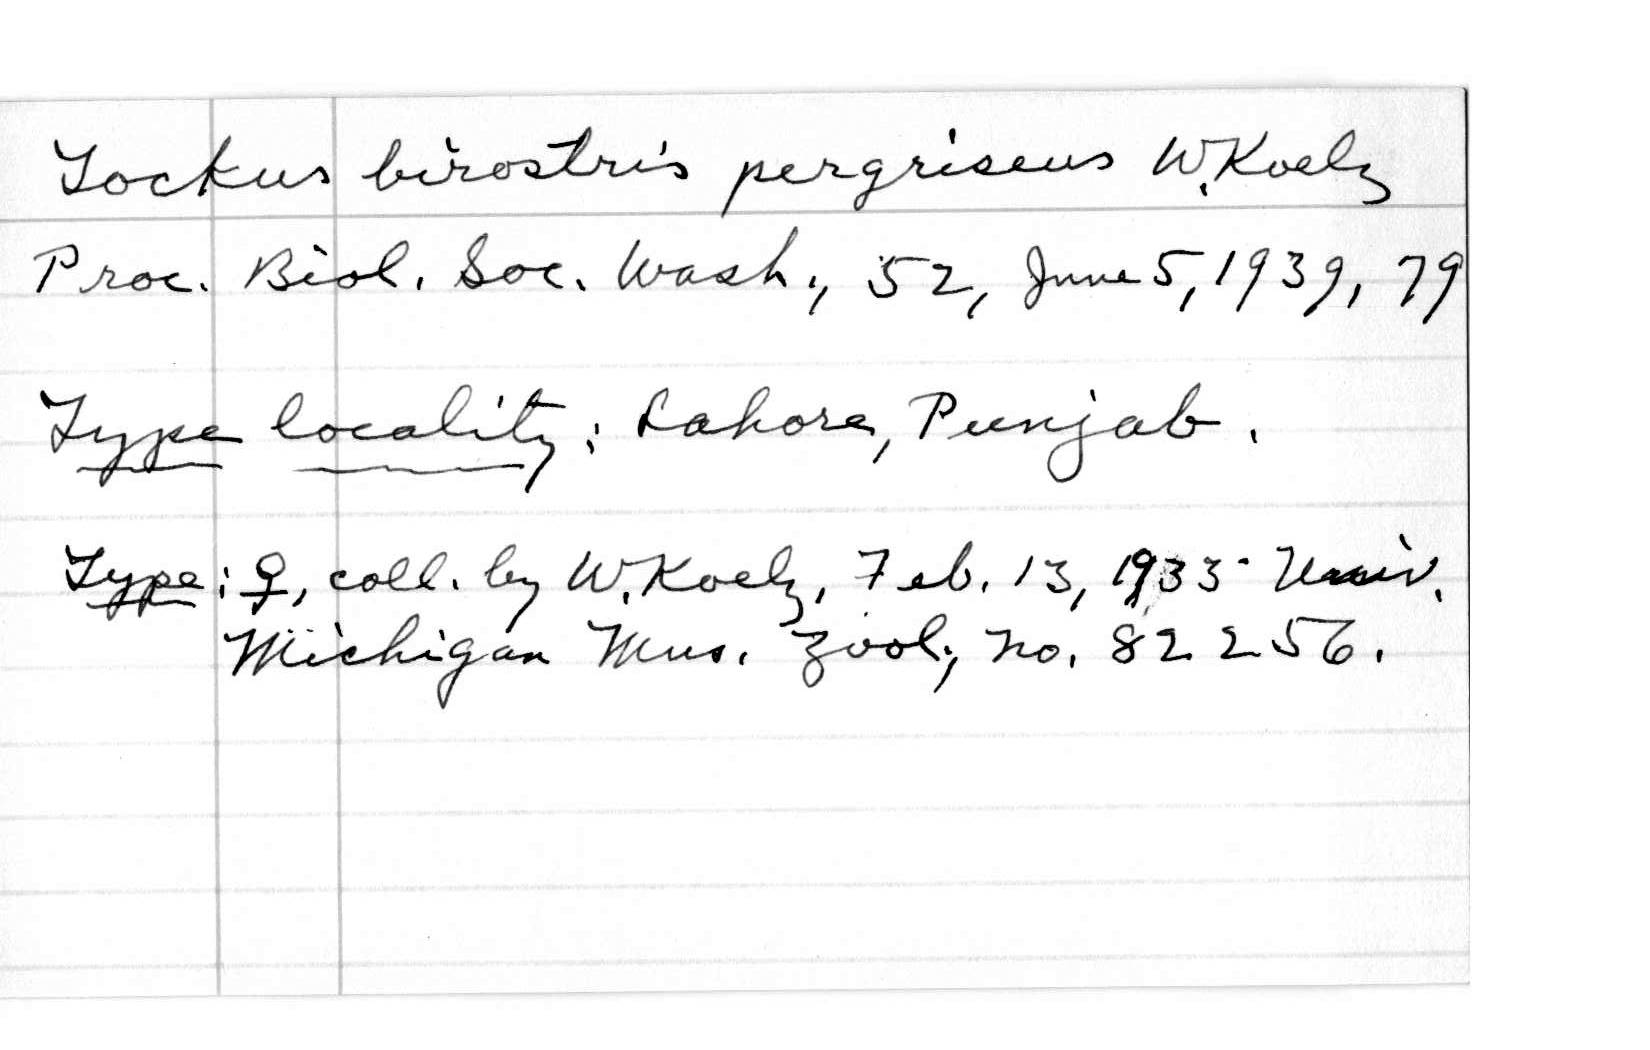 Tockus birostris pergriseus W. Koelz
Proc. Biol. Soc. Wash., 52, June 5, 1939, 79
Type locality: Lahore, Punjab.
Type: ♀, coll. by W. Koelz, Feb. 13, 1933- Univ.
Michigan Mus. Zool., No. 82256.